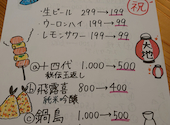 ・生ビール 299→199
・ウーロンハイ 199→99
・レモンサワー 199→99
祝
天地
十四代 1,000→500
秘伝玉返し
飛露喜 800→400
純米吟醸
鍋島 1,000→500